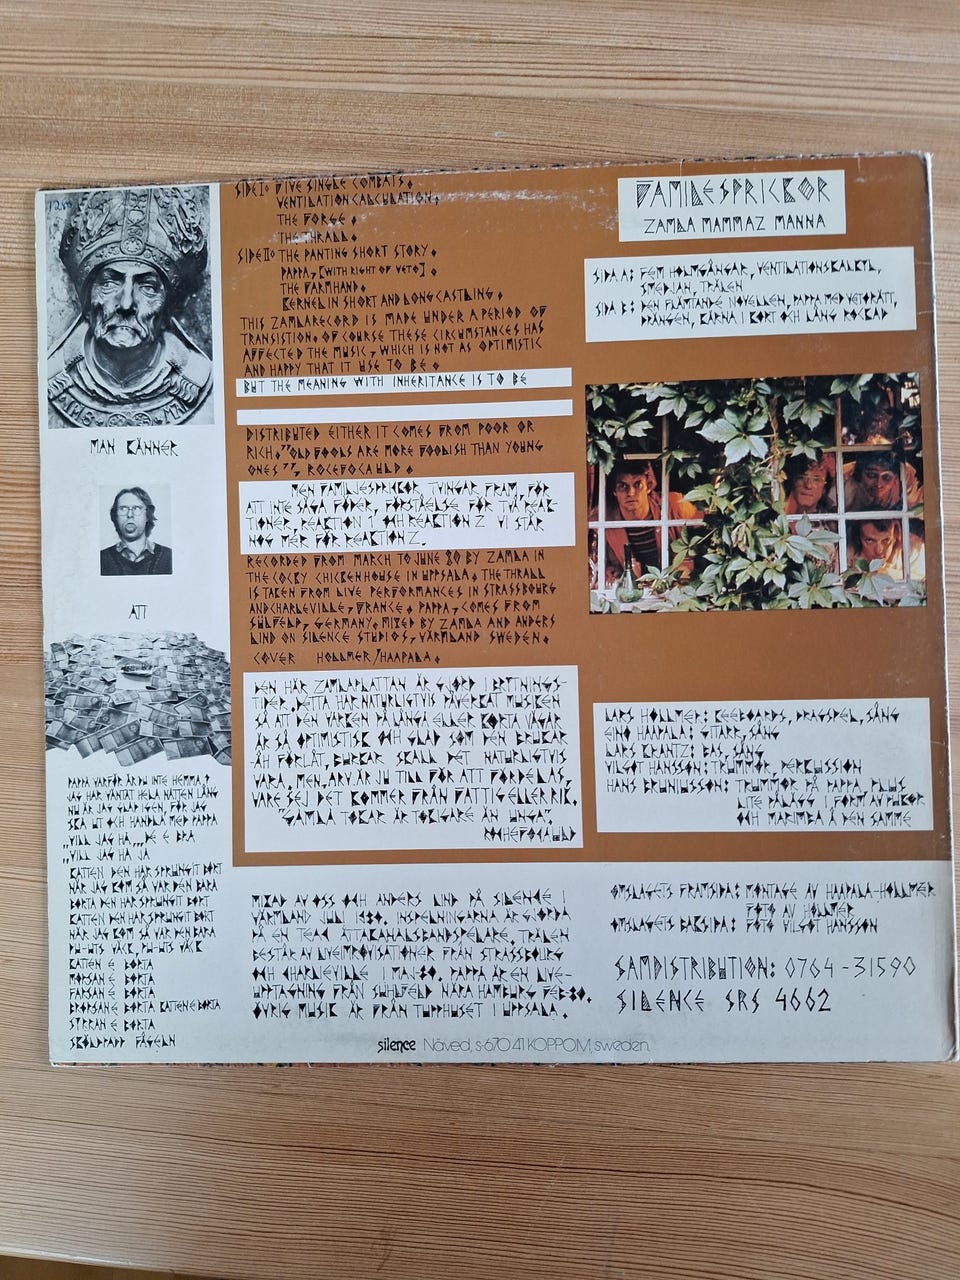 1250
MAN KÄNNER
ATT
PAPPA VARFÖR ÄR DU INTE HEMMA?
JAG HAR VÄNTAT HELA NATTEN LÅNG
NU ÄR JAG GLAD IGEN, FÖR JAG
SKA UT OCH HANDLA MED PAPPA
„VILL JAG HA„„DE E BRA
„VILL JAG HA JA
KATTEN DEN HAR SPRUNGIT BORT
NÄR JAG KOM SÅ VAR DEN BARA
BORTA DEN HAR SPRUNGIT BORT
KATTEN DEN HAR SPRUNGIT BORT
NÄR JAG KOM SÅ VAR DEN BARA
VÄCK
KATTEN E BORTA
MORSAN E BORTA
FARSAN E BORTA
BRORSAN E BORTA KATTEN E BORTA
SYRRAN E BORTA
SKÖLDPADD FÅGELN
SIDE I: FIVE SINGLE COMBATS.
VENTILATION CALCULATION.
THE FORGE.
THE THRALL.
SIDE II: THE PANTING SHORT STORY.
PAPPA, [WITH RIGHT OF VETO].
THE FARMHAND.
KERNEL IN SHORT AND LONG CASTLING.
THIS ZAMLARECORD IS MADE UNDER A PERIOD OF
TRANSISTION. OF COURSE THESE CIRCUMSTANCES HAS
AFFECTED THE MUSIC, WHICH IS NOT AS OPTIMISTIC
AND HAPPY THAT IT USE TO BE.
BUT THE MEANING WITH INHERITANCE IS TO BE
DISTRIBUTED EITHER IT COMES FROM POOR OR
RICH. "OLD FOOLS ARE MORE FOOLISH THAN YOUNG
ONES", ROCEFOCAULD.
MEN FAMILIESPRICKOR TVINGAR FRAM, FÖR
ATT INTE SÄGA FÖDER, FÖRSTÅELSE FÖR TVÅ REAK-
TIONER, REAKTION 1 OCH REAKTION 2 VI STÅR
NOG MER FÖR REAKTION 2.
RECORDED FROM MARCH TO JUNE 80 BY ZAMLA IN
THE COCKY CHICKENHOUSE IN UPPSALA. THE THRALL
IS TAKEN FROM LIVE PERFORMANCES IN STRASSBOURG
AND CHARLEVILLE, FRANCE. PAPPA, COMES FROM
SÜLFELD, GERMANY. MIXED BY ZAMLA AND ANDERS
LIND ON SILENCE STUDIOS, VÄRMLAND SWEDEN.
COVER HOLLMER/HAAPALA.
DEN HÄR ZAMLAPLATTAN ÄR GJORD I BRYTNINGS-
TIDER. DETTA HAR NATURLIGTVIS PÅVERKAT MUSIKEN
SÅ ATT DEN VARKEN PÅ LÅNGA ELLER KORTA VÄGAR
ÄR SÅ OPTIMISTISK OCH GLAD SOM DEN BRUKAR
ÅH FÖRLÅT, BURKAR SKALL DET NATURLIGTVIS
VARA. MEN, ARV ÄR JU TILL FÖR ATT FÖRDELAS,
VARE SEJ DET KOMMER FRÅN FATTIG ELLER RIK.
"GAMLA TOKAR ÄR TOKIGARE ÄN UNGA".
ROCHEFOCAULD
MIXAD AV OSS OCH ANDERS LIND PÅ SILENCE I
VÄRMLAND JULI 1980. INSPELNINGARNA ÄR GJORDA
PÅ EN TEAC ÅTTAKANALSBANDSPELARE. TRÄLEN
BESTÅR AV LIVEIMPROVISATIONER FRÅN STRASSBOURG
OCH CHARLEVILLE I MAJ-80. PAPPA ÄR EN LIVE-
UPPTAGNING FRÅN SÜHLFELD NÄRA HAMBURG FEB-80.
ÖVRIG MUSIK ÄR FRÅN TUPPHUSET I UPPSALA.
FAMILJESPRICKOR
ZAMLA MAMMAZ MANNA
SIDA A: FEM HOLMGÅNGAR, VENTILATIONSKALKYL,
SMEDJAN, TRÄLEN
SIDA B: DEN FLÄMTANDE NOVELLEN, PAPPA MED VETORÄTT,
DRÄNGEN, KÄRNA I KORT OCH LÅNG ROCKAD
LARS HOLLMER: KEEBOARDS, DRAGSPEL, SÅNG
EINO HAAPALA: GITARR, SÅNG
LARS KRANTZ: BAS, SÅNG
VILGOT HANSSON: TRUMMOR, PERCUSSION
HANS BRUNIUSSON: TRUMMOR PÅ PAPPA, PLUS
LITE PÅLÄGG I FORM AV PUKOR
OCH MARIMBA Å DEN SAMME
OMSLAGETS FRAMSIDA: MONTAGE AV HAAPALA-HOLLMER
FOTO AV HOLLMER
OMSLAGETS BAKSIDA: FOTO VILGOT HANSSON
SAMDISTRIBUTION: 0764-31590
SILENCE SRS 4662
silence Näved, s-670 41 KOPPOM, sweden.